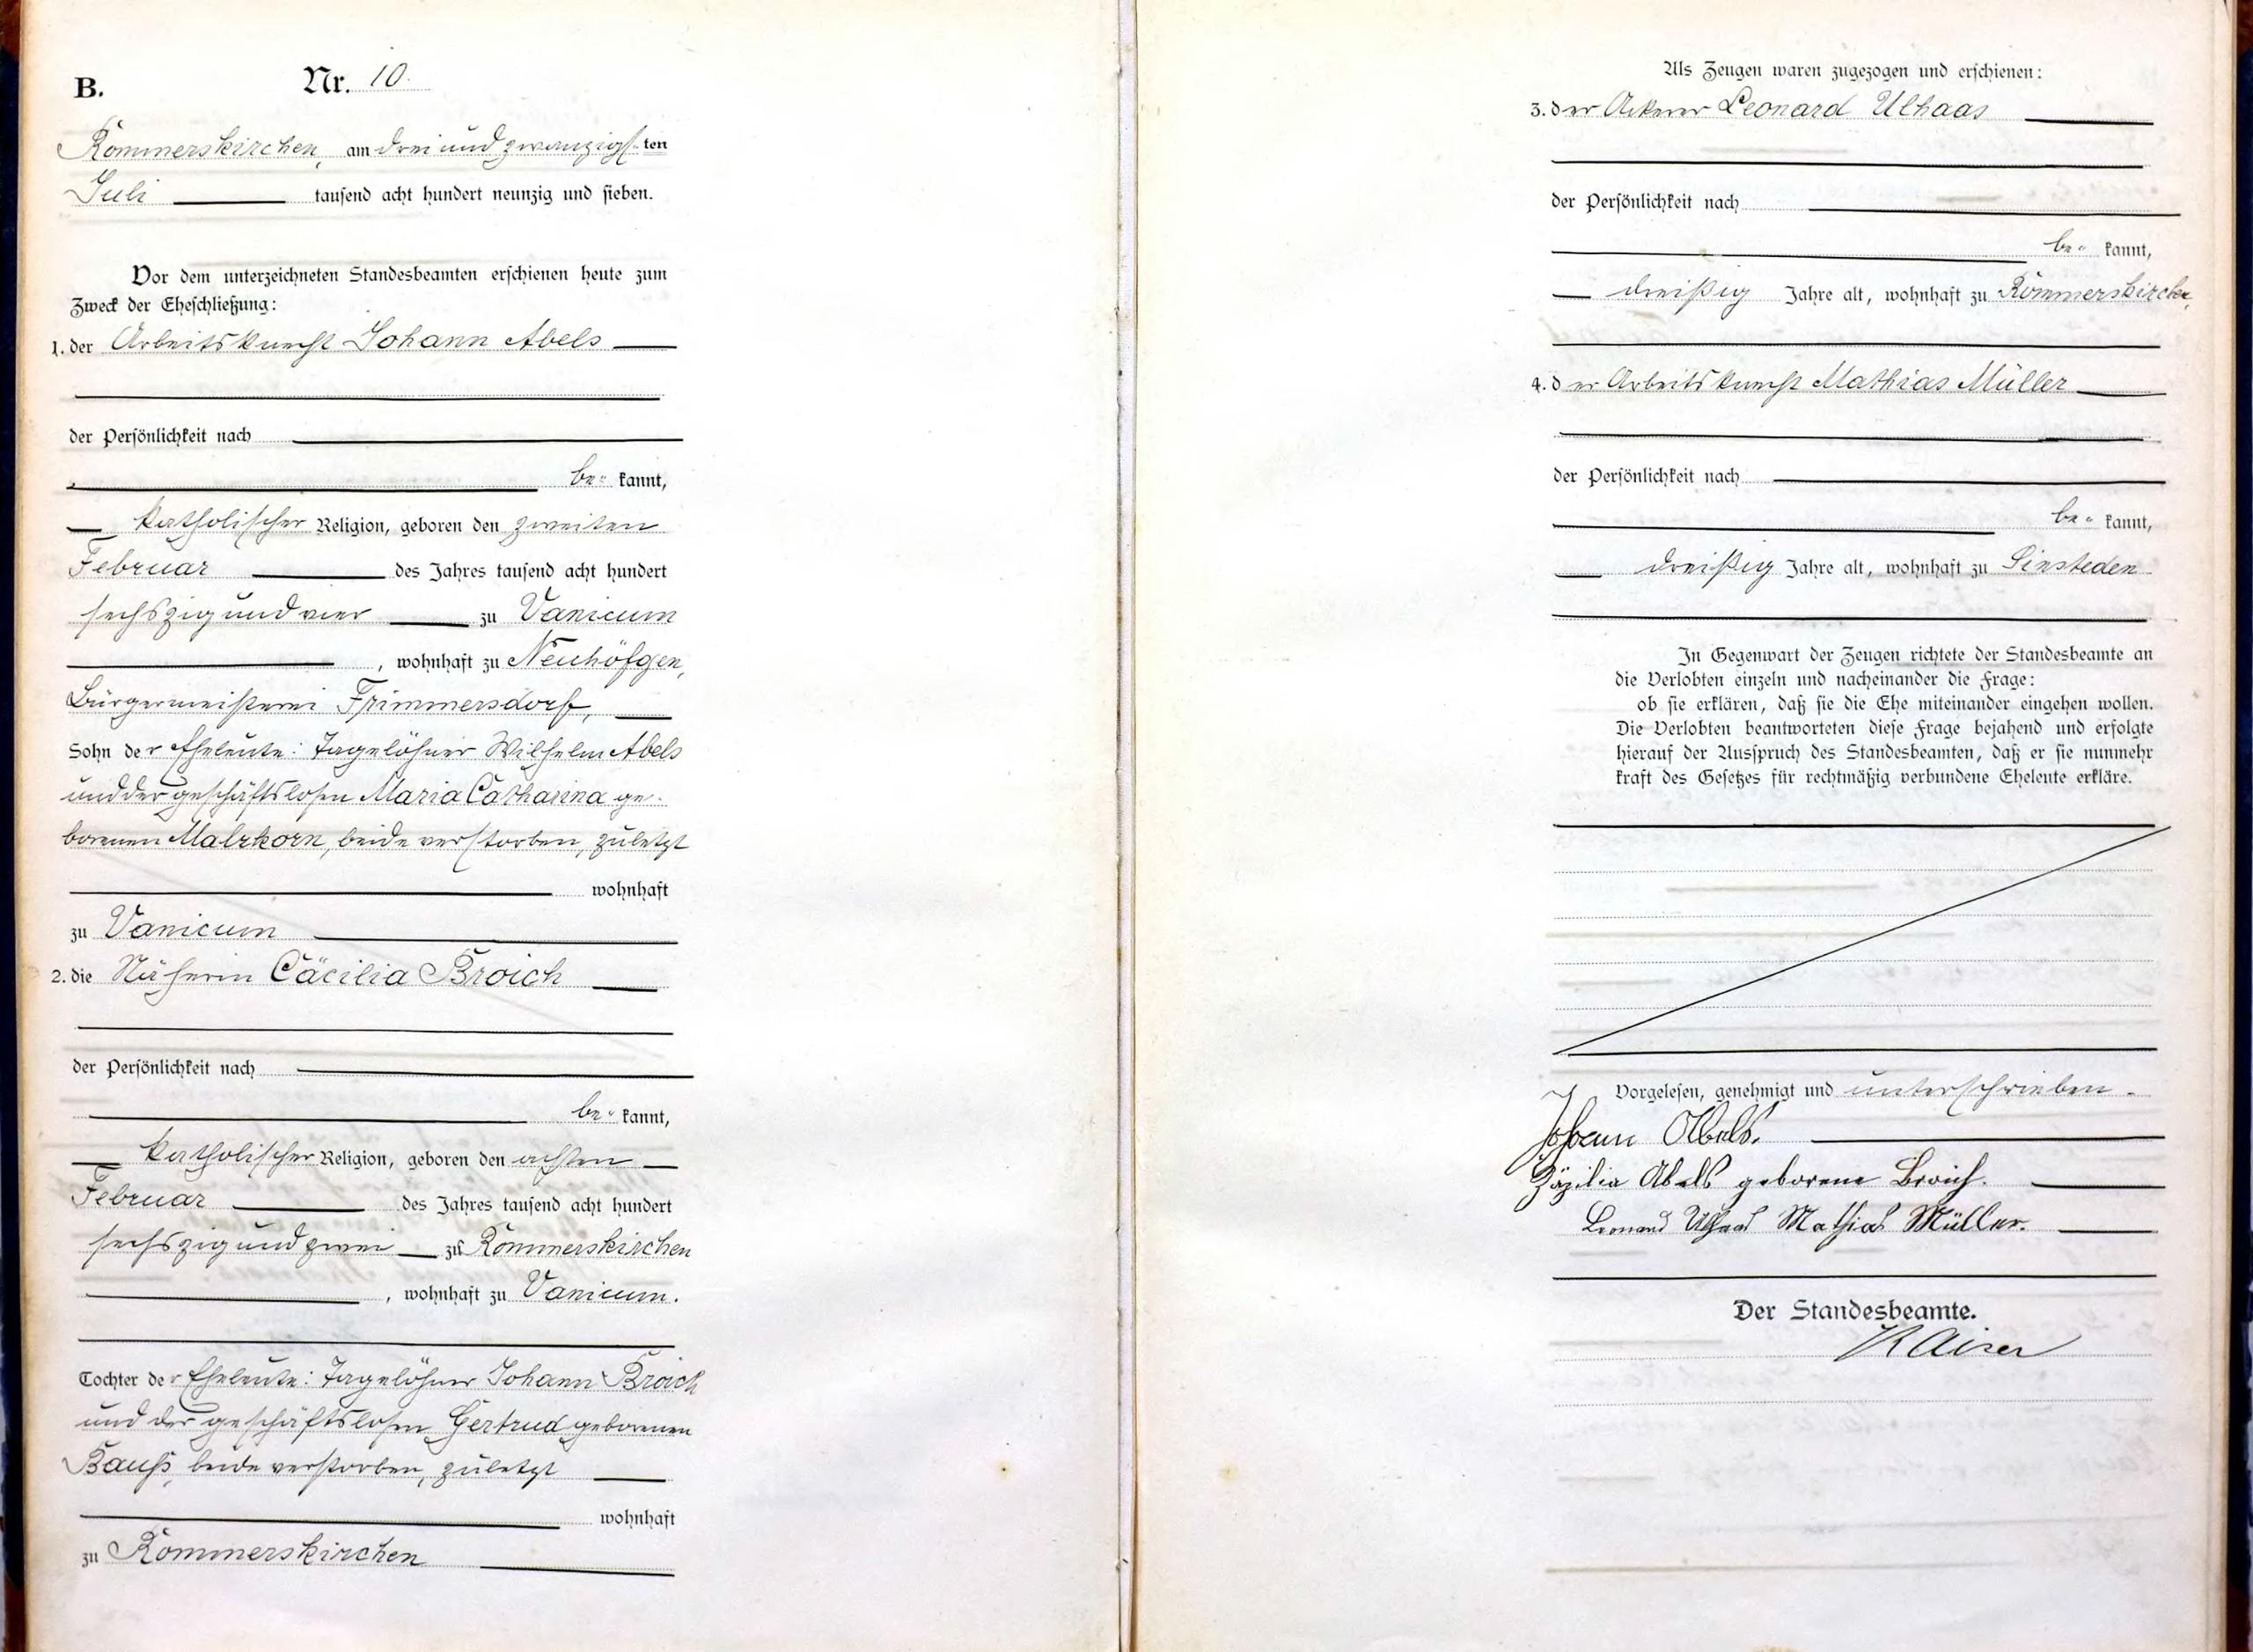 B. Nr. 10.
Rommerskirchen, am drei und zwanzigsten
Juli tausend acht hundert neunzig und sieben.
Vor dem unterzeichneten Standesbeamten erschienen heute zum
Zweck der Eheschließung:
1. der Arbeitsknecht Johann Abels
der Persönlichkeit nach
be= kannt,
katholischer Religion, geboren den zweiten
Februar des Jahres tausend acht hundert
sechszig und vier zu Vanicum
, wohnhaft zu Neuhöfgen,
Bürgermeisterei Frimmersdorf,
Sohn der Eheleute: Tagelöhner Wilhelm Abels
und der geschäftslosen Maria Catharina ge-
borenen Malzkorn, beide verstorben, zuletzt
wohnhaft
zu Vanicum
2. die Näherin Cäcilia Broich
der Persönlichkeit nach
be= kannt,
katholischer Religion, geboren den achten
Februar des Jahres tausend acht hundert
sechszig und zwei zu Rommerskirchen
, wohnhaft zu Vanicum.
Tochter der Eheleute: Tagelöhner Johann Broich
und der geschäftslosen Gertrud geborenen
Bauß, beide verstorben, zuletzt
wohnhaft
zu Rommerskirchen
Als Zeugen waren zugezogen und erschienen:
3. der Ackerer Leonard Ulhaas
der Persönlichkeit nach
be= kannt,
dreißig Jahre alt, wohnhaft zu Rommerskirchen,
4. der Arbeitsknecht Mathias Müller
der Persönlichkeit nach
be= kannt,
dreißig Jahre alt, wohnhaft zu Sinsteden
In Gegenwart der Zeugen richtete der Standesbeamte an
die Verlobten einzeln und nacheinander die Frage:
ob sie erklären, daß sie die Ehe miteinander eingehen wollen.
Die Verlobten beantworteten diese Frage bejahend und erfolgte
hierauf der Ausspruch des Standesbeamten, daß er sie nunmehr
kraft des Gesetzes für rechtmäßig verbundene Eheleute erkläre.
Vorgelesen, genehmigt und unterschrieben.
Johann Abels.
Zäzilia Abels geborene Broich.
Leonard Ulhaas Mathias Müller.
Der Standesbeamte.
Kaiser